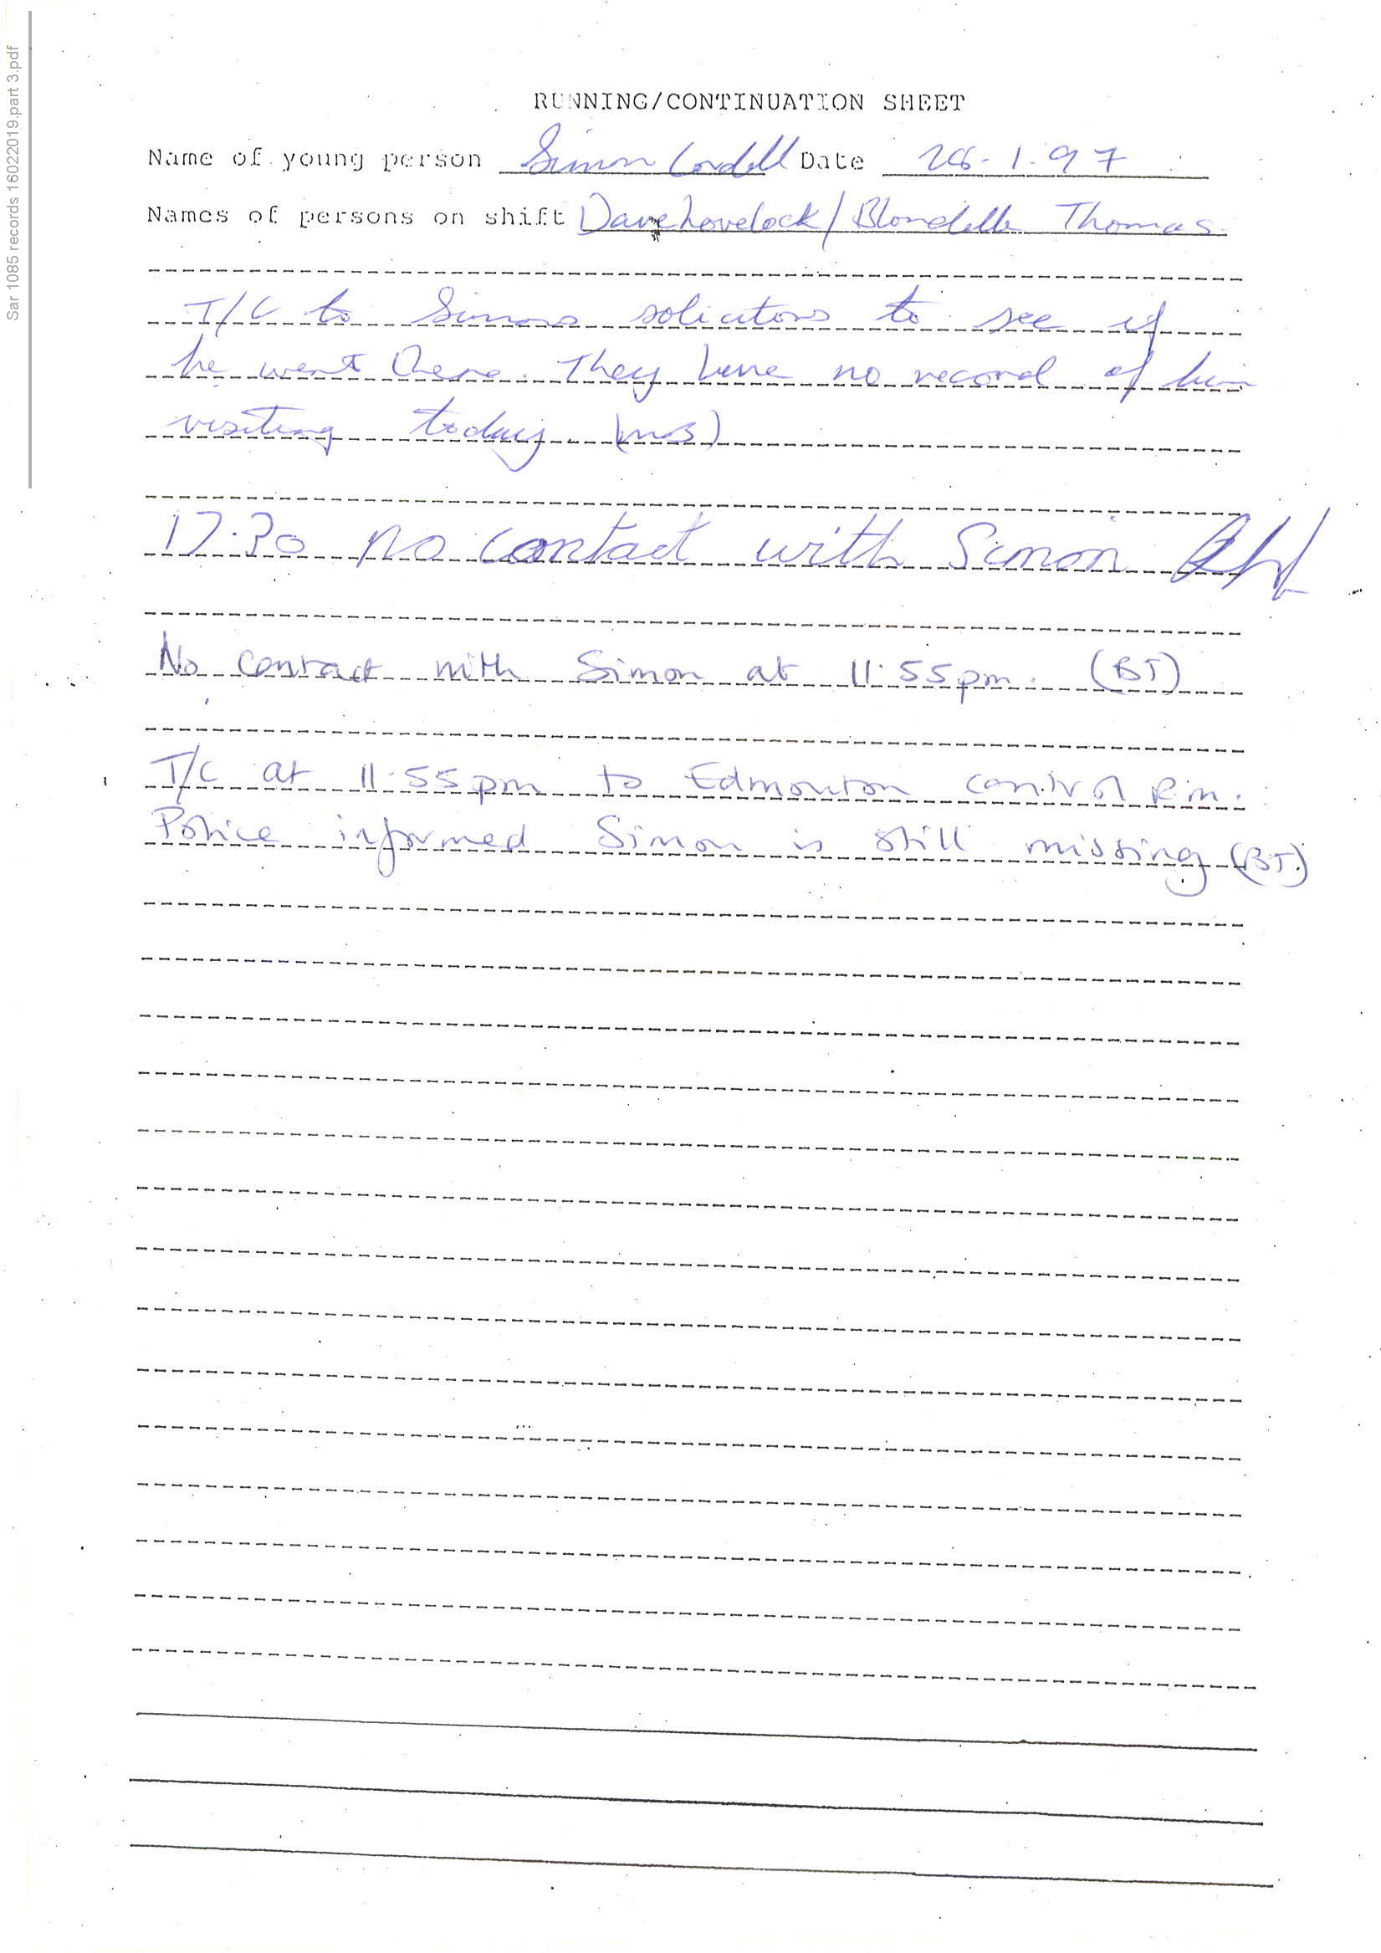 Sar 1085 records 16022019.part 3.pdf
RUNNING/CONTINUATION SHEET
Name of young person Simon Cordell Date 28.1.97
Names of persons on shift Dave Lovelock/Blondelle Thomas
T/C to Simons solicitors to see if
he went there. They have no record of him
visiting today.
17.30 no contact with Simon
No contact with Simon at 11.55pm. (BT)
T/C at 11.55pm to Edmonton control Rm.
Police informed Simon is still missing (BT)